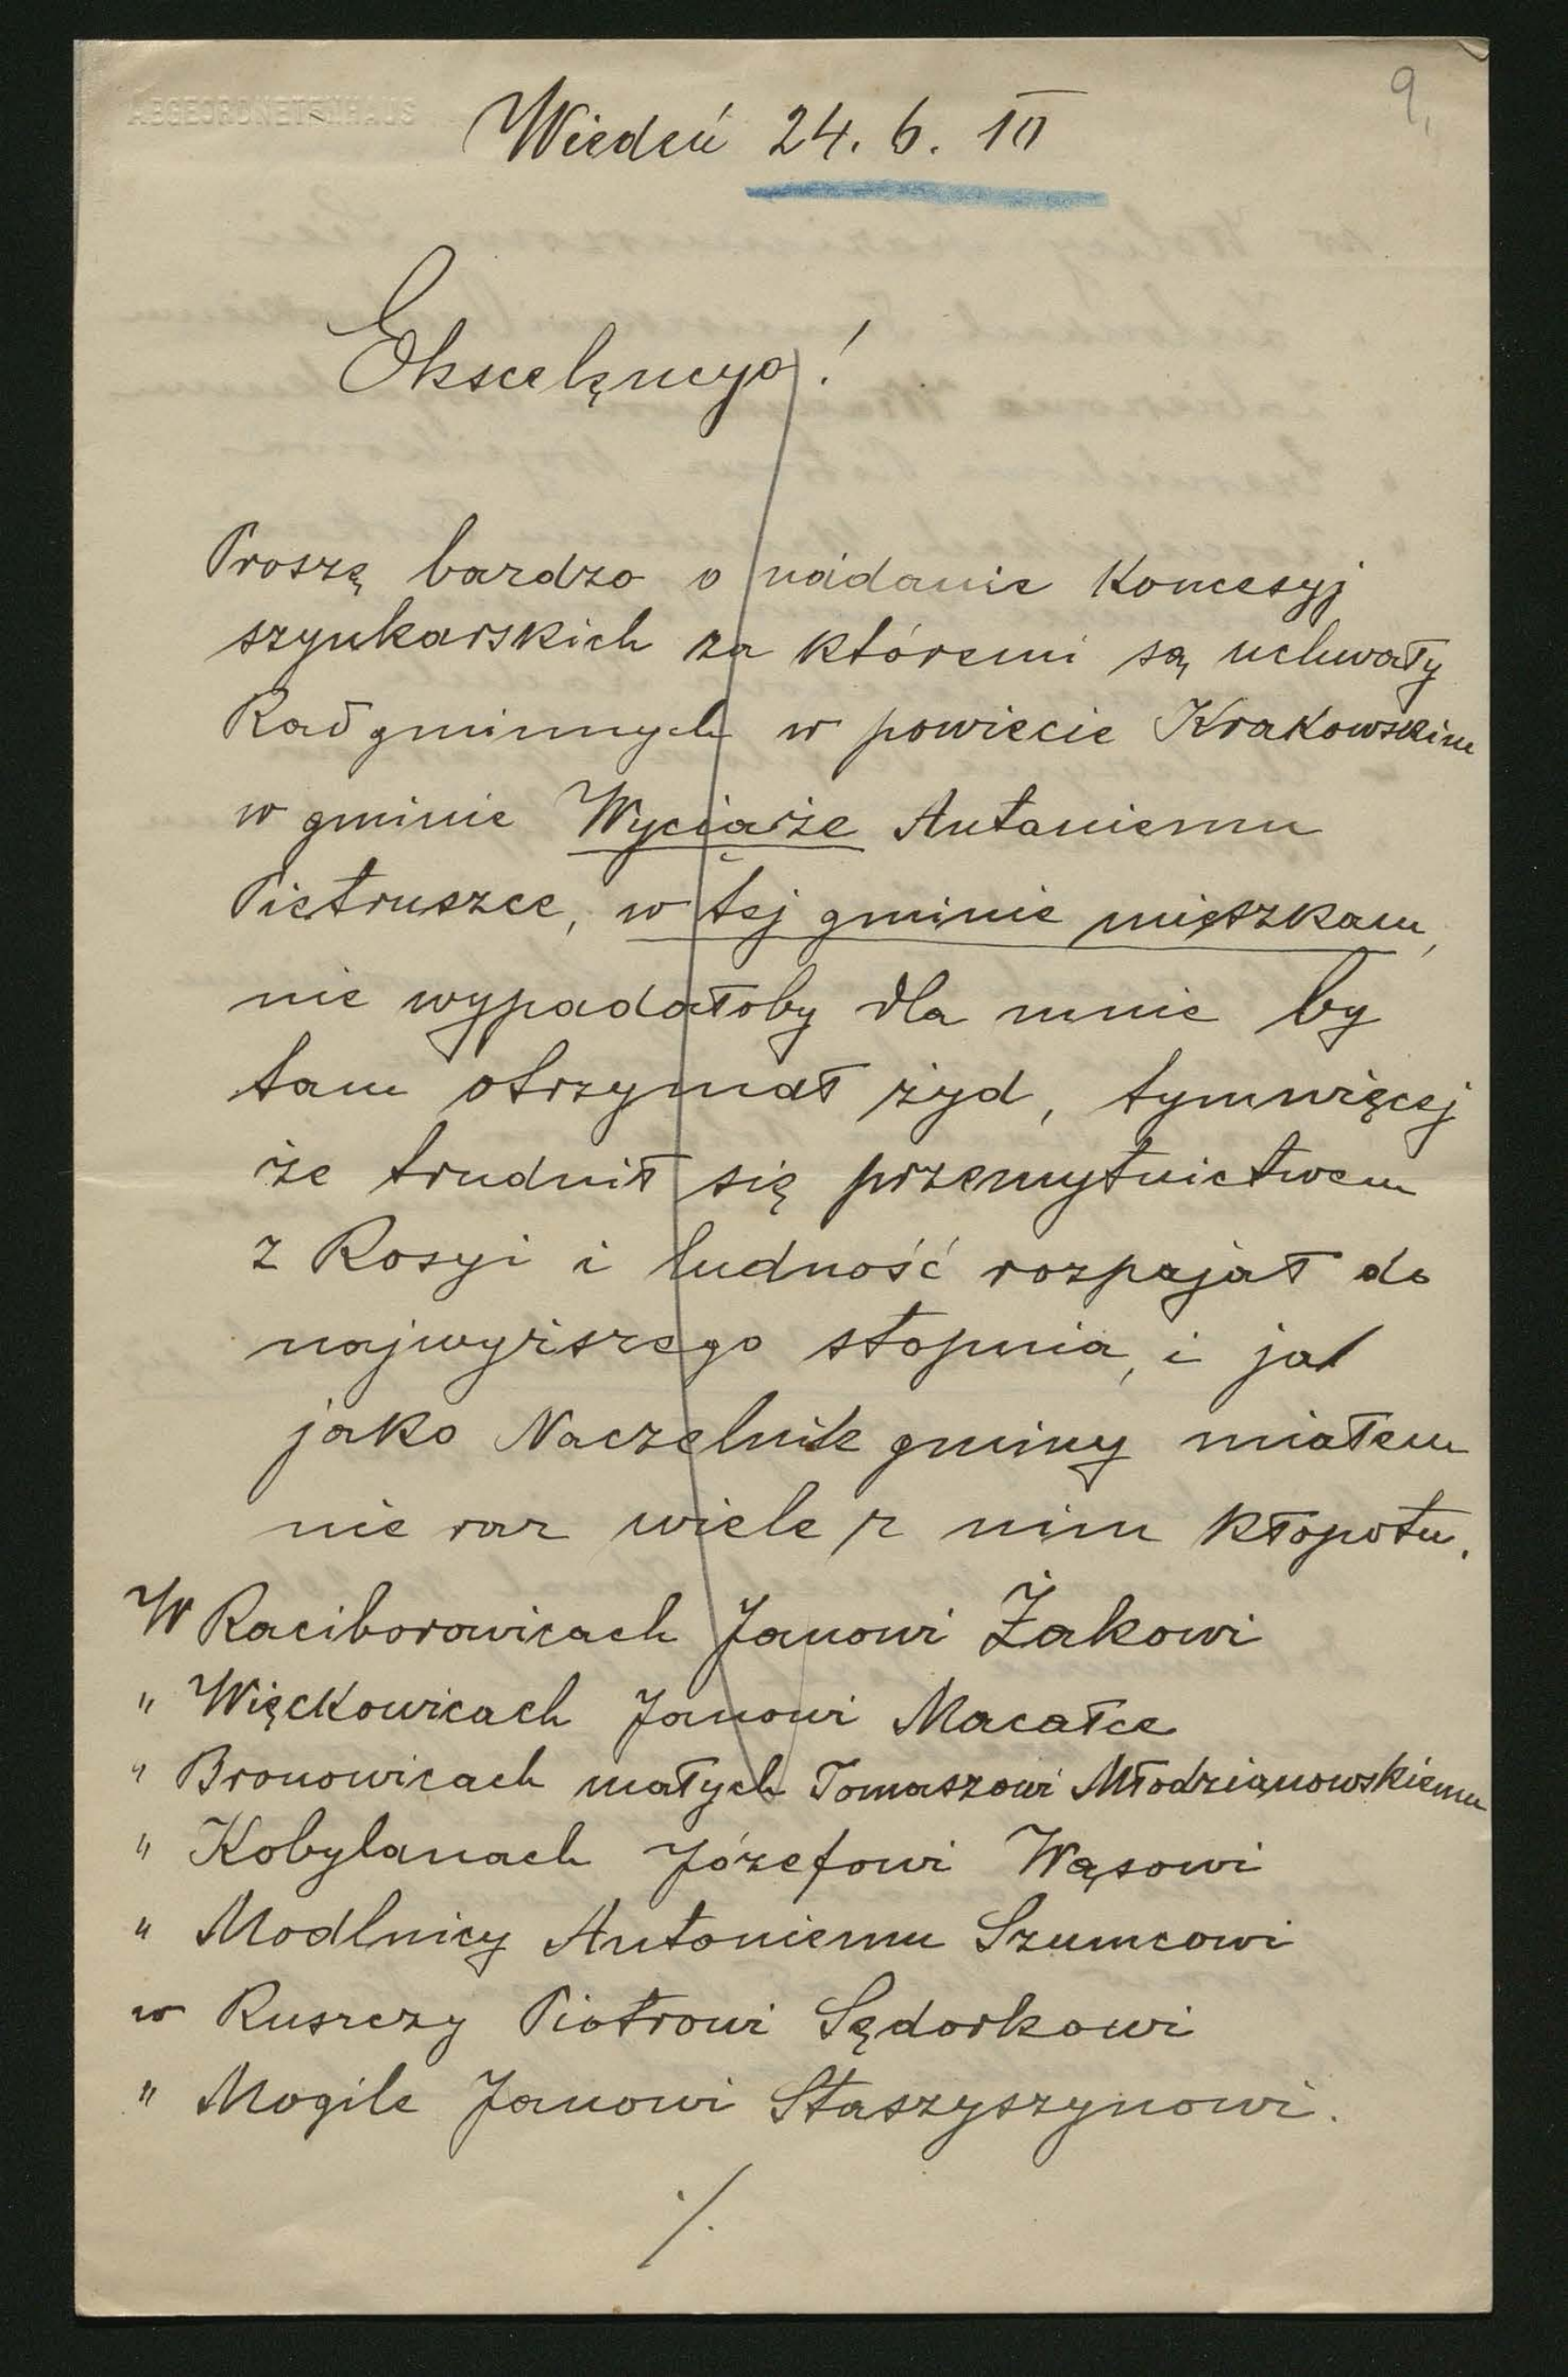 9.
ABGEORDNETENHAUS
Wiedeń 24. 6. 10
Ekscelęncyo!
Proszę bardzo o nadanie Koncesyj
szynkarskich za któremi są uchwały
Rad gminnych w powiecie Krakowskim
w gminie Wyciąże Antoniemu
Pietruszce, w tej gminie mięszkam,
nie wypadałoby dla mnie by
tam otrzymał żyd, tymwięcej
że trudnił się przemytnictwem
z Rosyi i ludność rozpajał do
najwyższego stopnia, i ja
jako Naczelnik gminy miałem
nie raz wiele z nim kłopotu.
W Raciborowicach Janowi Żakowi
" Więckowicach Janowi Macałce
" Bronowicach małych Tomaszowi Młodzianowskiemu
" Kobylanach Józefowi Wąsowi
" Modlnicy Antoniemu Szumcowi
w Ruszczy Piotrowi Sędorkowi
" Mogile Janowi Staszyszynowi.
./.